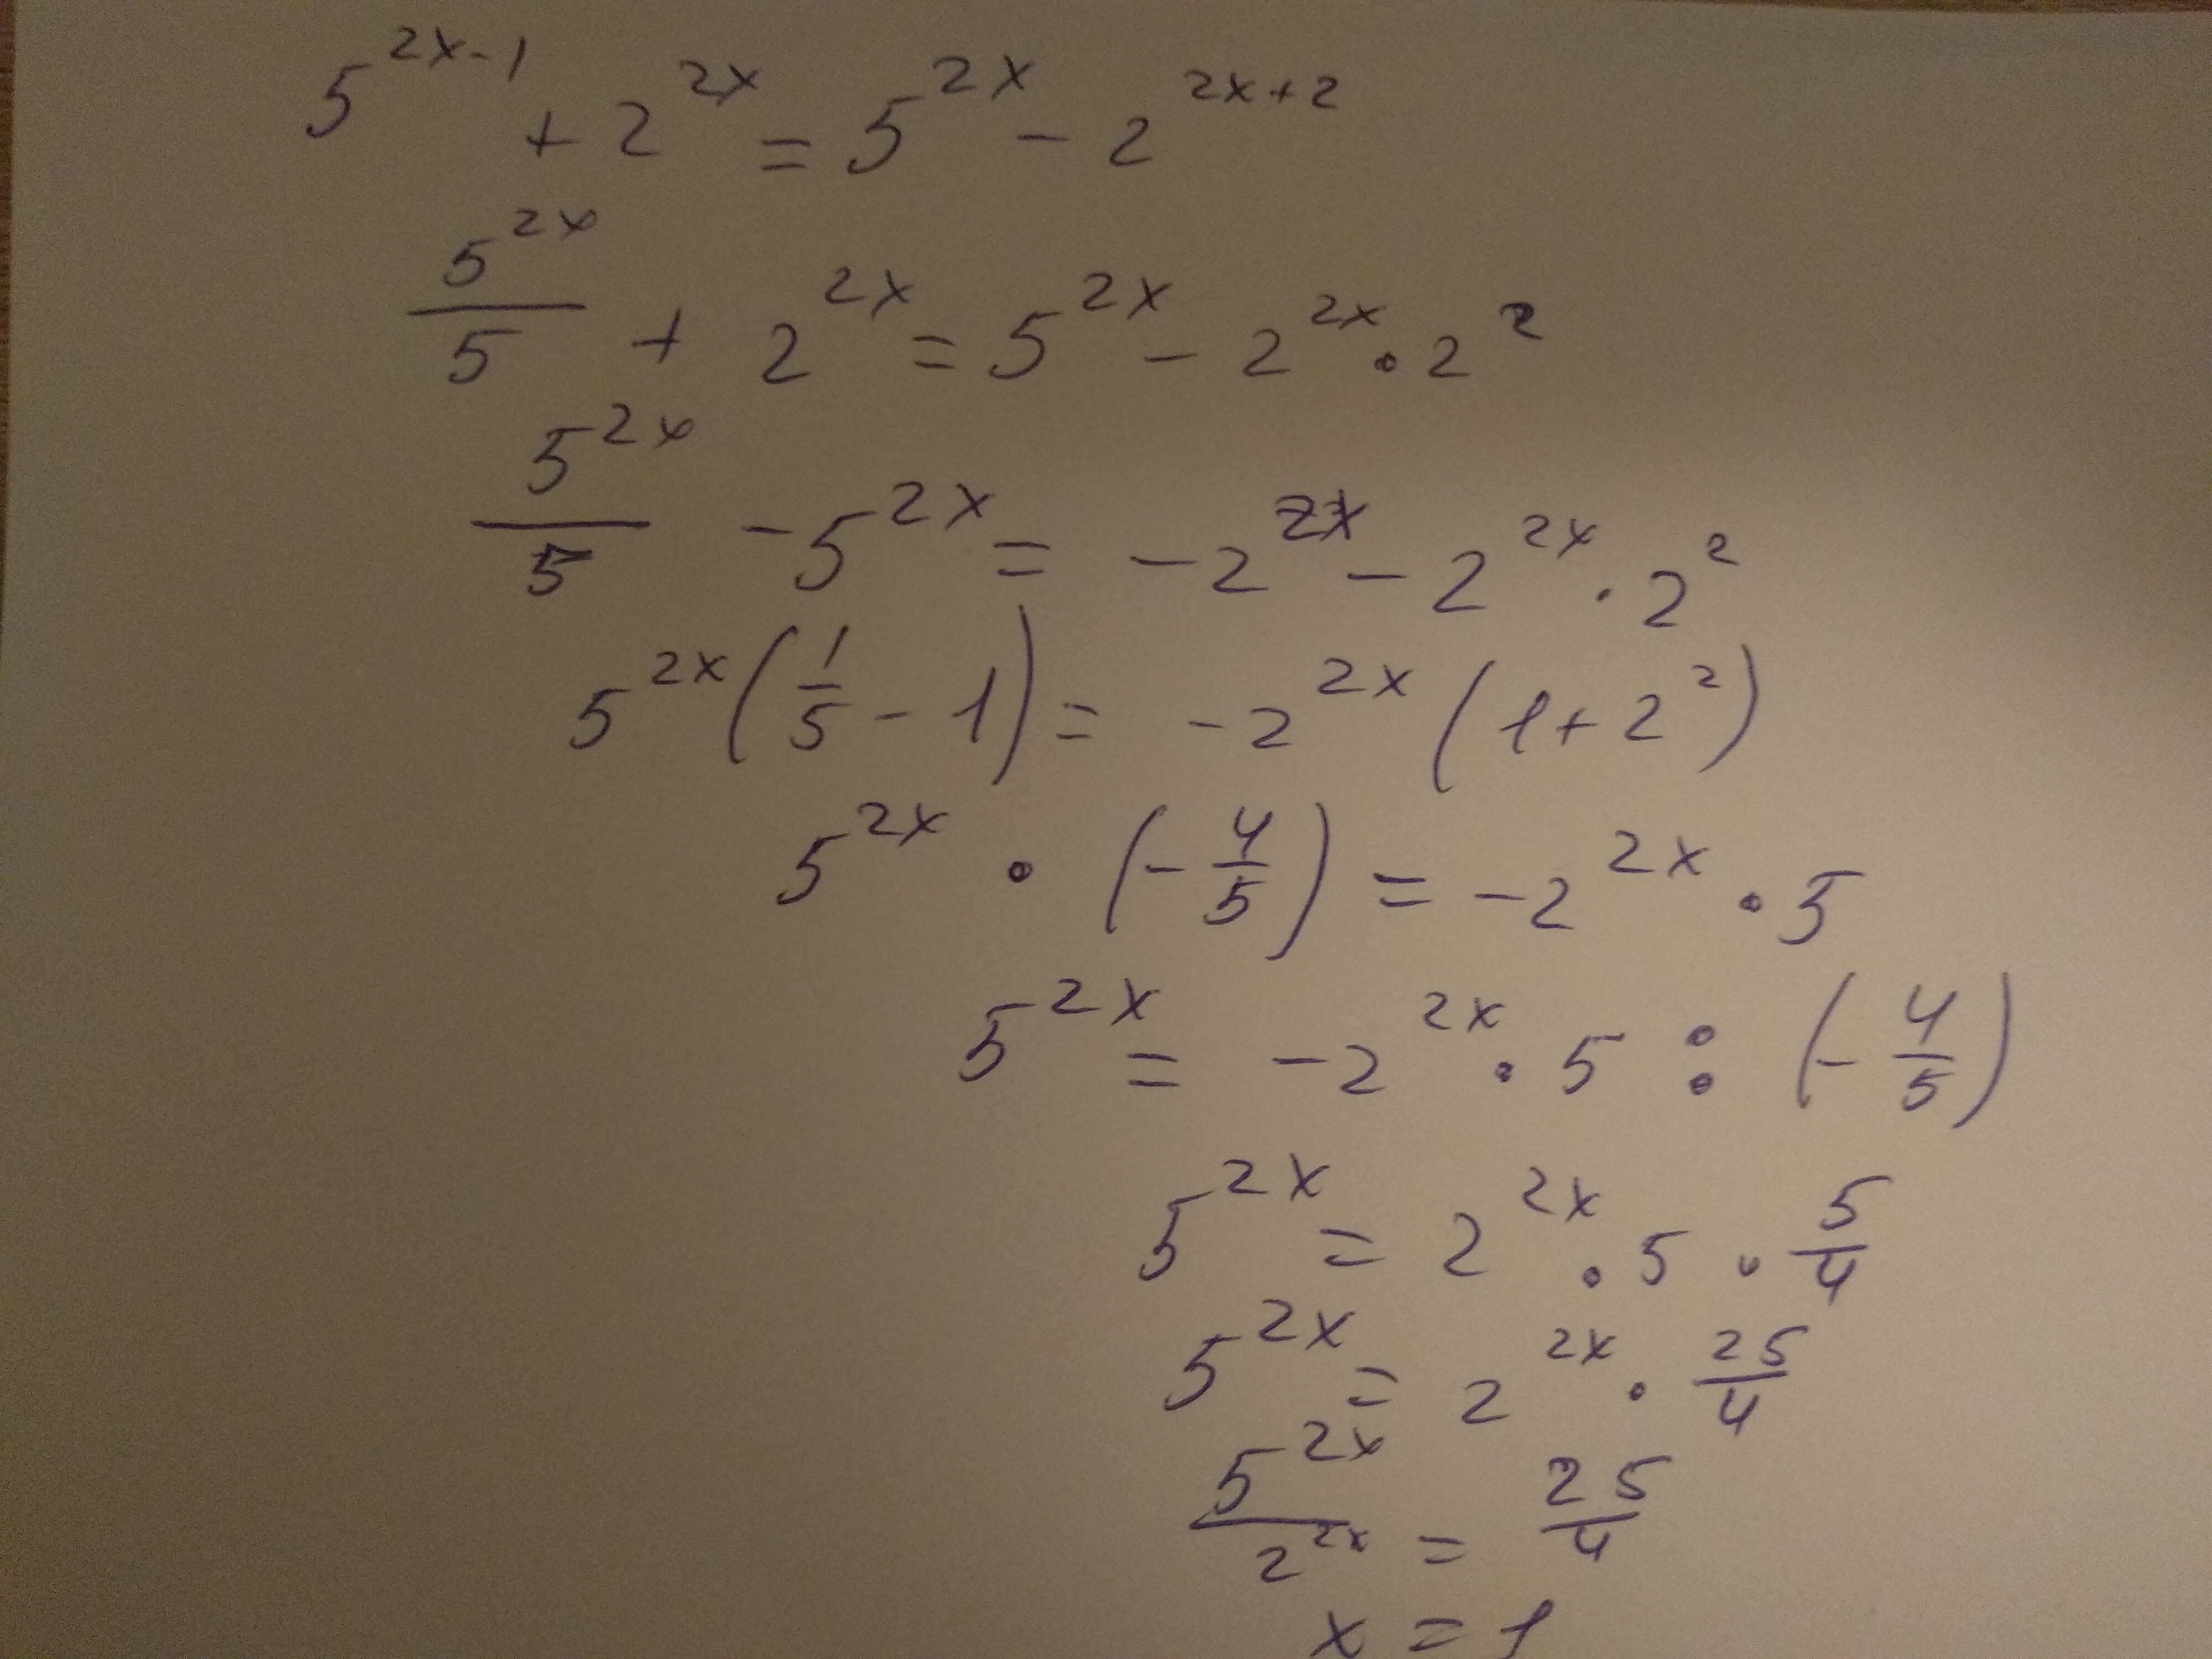 5^{2x-1} + 2^{2x} = 5^{2x} - 2^{2x+2}
\frac{5^{2x}}{5} + 2^{2x} = 5^{2x} - 2^{2x} · 2^2
\frac{5^{2x}}{5} - 5^{2x} = -2^{2x} - 2^{2x} · 2^2
5^{2x} (\frac{1}{5} - 1) = -2^{2x} (1 + 2^2)
5^{2x} · (-\frac{4}{5}) = -2^{2x} · 5
5^{2x} = -2^{2x} · 5 : (-\frac{4}{5})
5^{2x} = 2^{2x} · 5 · \frac{5}{4}
5^{2x} = 2^{2x} · \frac{25}{4}
\frac{5^{2x}}{2^{2x}} = \frac{25}{4}
x = 1